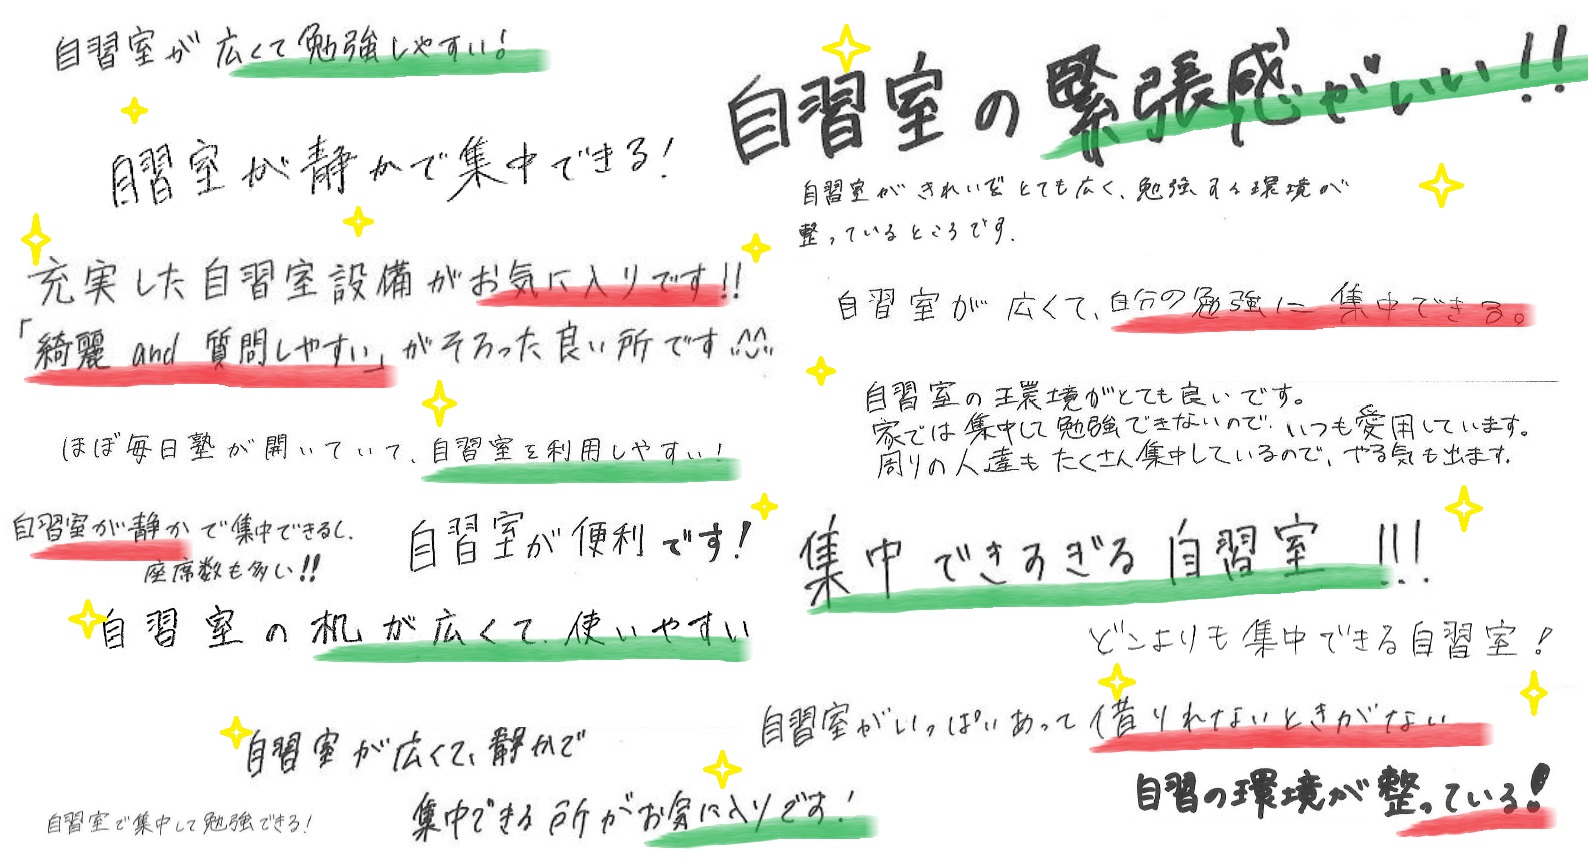 自習室が広くて勉強しやすい!
自習室が静かで集中できる!
充実した自習室設備がお気に入りです!!
「綺麗 and 質問しやすい」がそろった良い所です
ほぼ毎日塾が開いていて、自習室を利用しやすい!
自習室が静かで集中できるし、
座席数も多い!!
自習室が便利です!
自習室の机が広くて、使いやすい
自習室が広くて、静かで
集中できる所がお気に入りです!
自習室で集中して勉強できる!
自習室の緊張感がいい!!
自習室がきれいでとても広く、勉強する環境が
整っているところです.
自習室が広くて、自分の勉強に集中できる。
自習室の環境がとても良いです。
家では集中して勉強できないので、いつも愛用しています。
周りの人達もたくさん集中しているので、やる気も出ます。
集中できすぎる自習室!!!
どこよりも集中できる自習室!
自習室がいっぱいあって借りれないときがない
自習の環境が整っている!